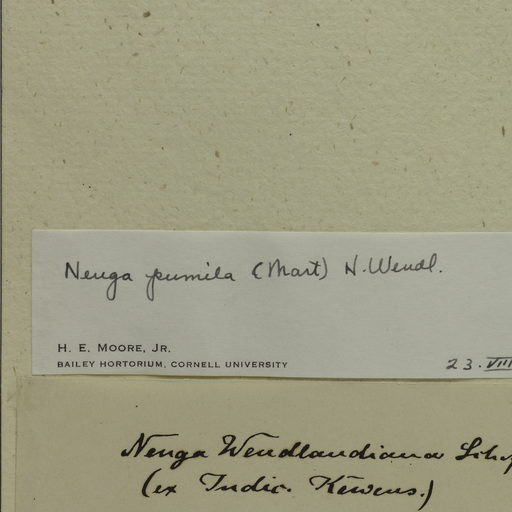 Nenga pumila (Mart) H. Wendl.
H. E. MOORE, JR.
BAILEY HORTORIUM, CORNELL UNIVERSITY
23. VIII
Nenga Wendlandiana
(ex Indic. Kewens.)